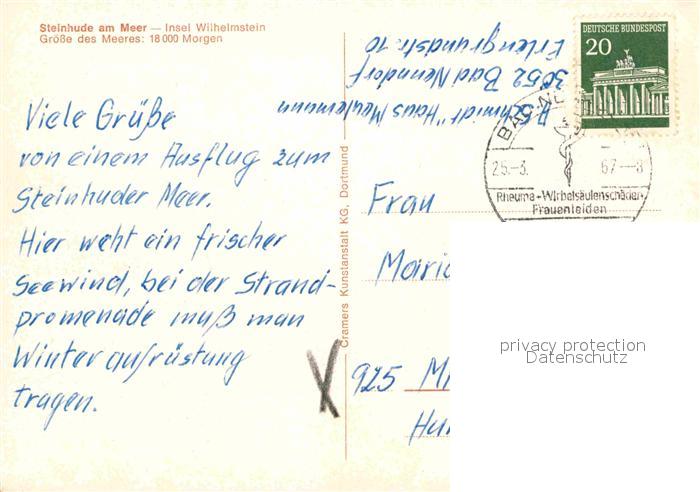 Steinhude am Meer — Insel Wilhelmstein
Größe des Meeres: 18 000 Morgen
Viele Grüße
von einem Ausflug zum
Steinhuder Meer.
Hier weht ein frischer
Seewind, bei der Strand-
promenade muß man
Winteraufrüstung
tragen.
Cramers Kunstanstalt KG, Dortmund
Schmidt "Haus Meulemann
3052 Bad Nenndorf
Erlengrundstr. 10
DEUTSCHE BUNDESPOST
20
BAD NE
25.-3. 67--8
Rheuma-Wirbelsäulenschäden
Frauenleiden
Frau
Maria
925
Hu
privacy protection
Datenschutz